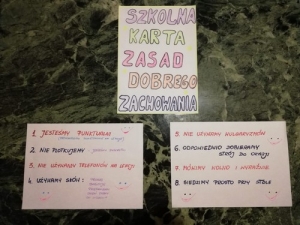 SZKOLNA
KARTA
ZASAD
DOBREGO
ZACHOWANIA
1. JESTEŚMY PUNKTUALNI
2. NIE PLOTKUJEMY
3. NIE UŻYWAMY TELEFONÓW NA LEKCJI
4. UŻYWAMY SŁÓW:
5. NIE UŻYWAMY WULGARYZMÓW
6. ODPOWIEDNIO DOBIERAMY
STRÓJ DO OKAZJI
7. MÓWIMY WOLNO I WYRAŹNIE
8. SIEDZIMY PROSTO PRZY STOLE